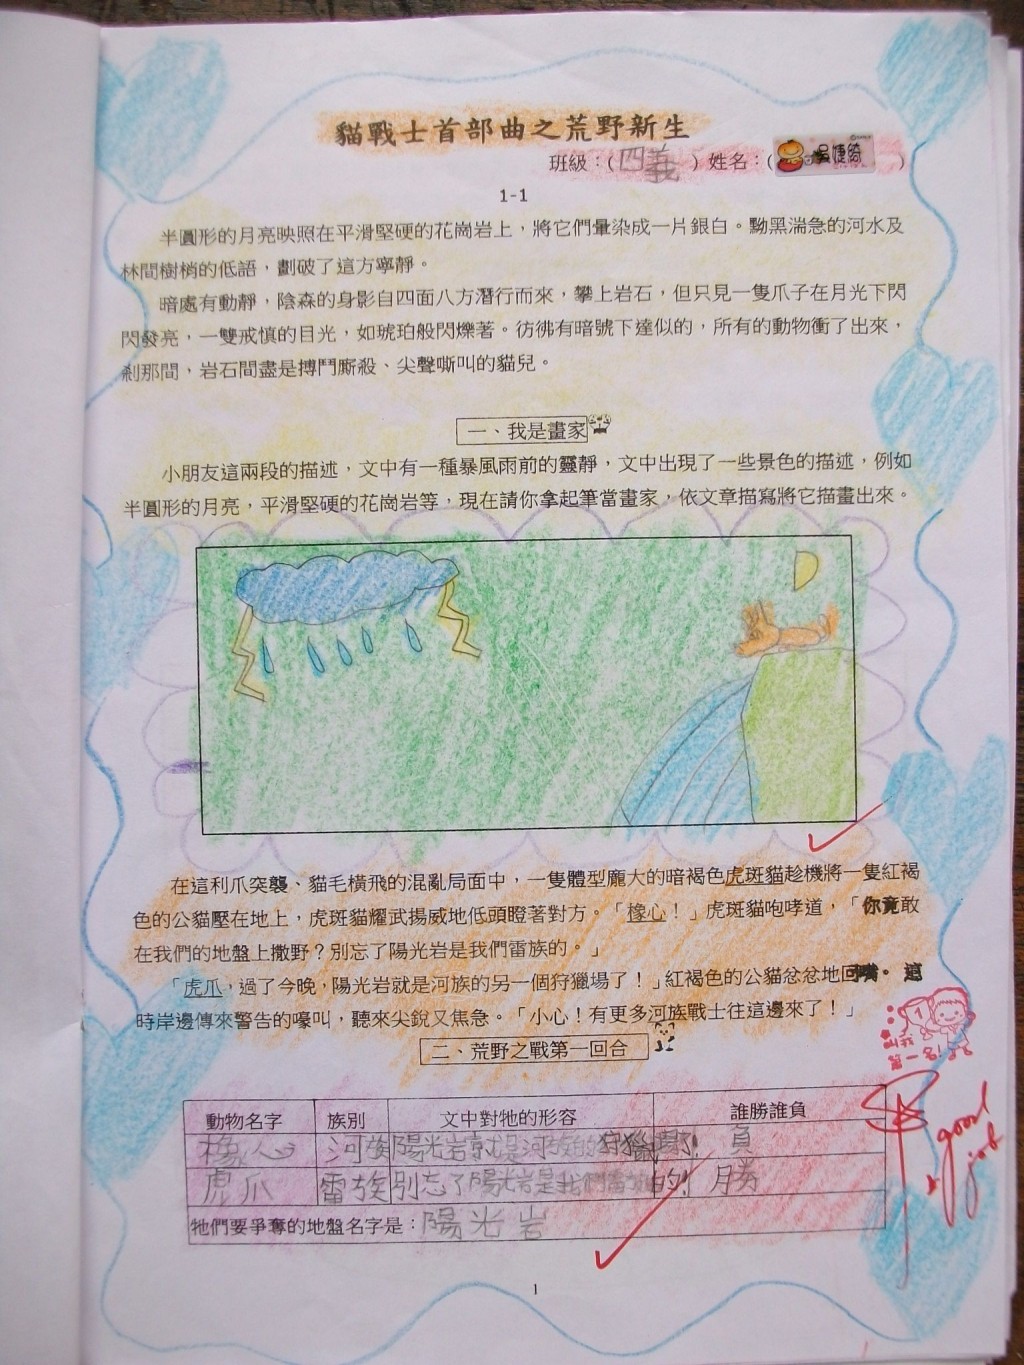 貓戰士首部曲之荒野新生
班級：(四義) 姓名：(吳婕綺)
1-1
半圓形的月亮映照在平滑堅硬的花崗岩上，將它們暈染成一片銀白。黝黑湍急的河水及
林間樹梢的低語，劃破了這方寧靜。
暗處有動靜，陰森的身影自四面八方潛行而來，攀上岩石，但只見一隻爪子在月光下閃
閃發亮，一雙戒慎的目光，如琥珀般閃爍著。彷彿有暗號下達似的，所有的動物衝了出來，
剎那間，岩石間盡是搏鬥廝殺、尖聲嘶叫的貓兒。
一、我是畫家
小朋友這兩段的描述，文中有一種暴風雨前的靈靜，文中出現了一些景色的描述，例如
半圓形的月亮，平滑堅硬的花崗岩等，現在請你拿起筆當畫家，依文章描寫將它描畫出來。
在這利爪突襲、貓毛橫飛的混亂局面中，一隻體型龐大的暗褐色虎斑貓趁機將一隻紅褐
色的公貓壓在地上，虎斑貓耀武揚威地低頭瞪著對方。「橡心！」虎斑貓咆哮道，「你竟敢
在我們的地盤上撒野？別忘了陽光岩是我們雷族的。」
「虎爪，過了今晚，陽光岩就是河族的另一個狩獵場了！」紅褐色的公貓忿忿地回嘴。這
時岸邊傳來警告的嚎叫，聽來尖銳又焦急。「小心！有更多河族戰士往這邊來了！」
二、荒野之戰第一回合
動物名字 族別 文中對牠的形容 誰勝誰負
橡心 河族 陽光岩就是河族的狩獵場! 負
虎爪 雷族 別忘了陽光岩是我們雷族的! 勝
牠們要爭奪的地盤名字是：陽光岩
good
job
1